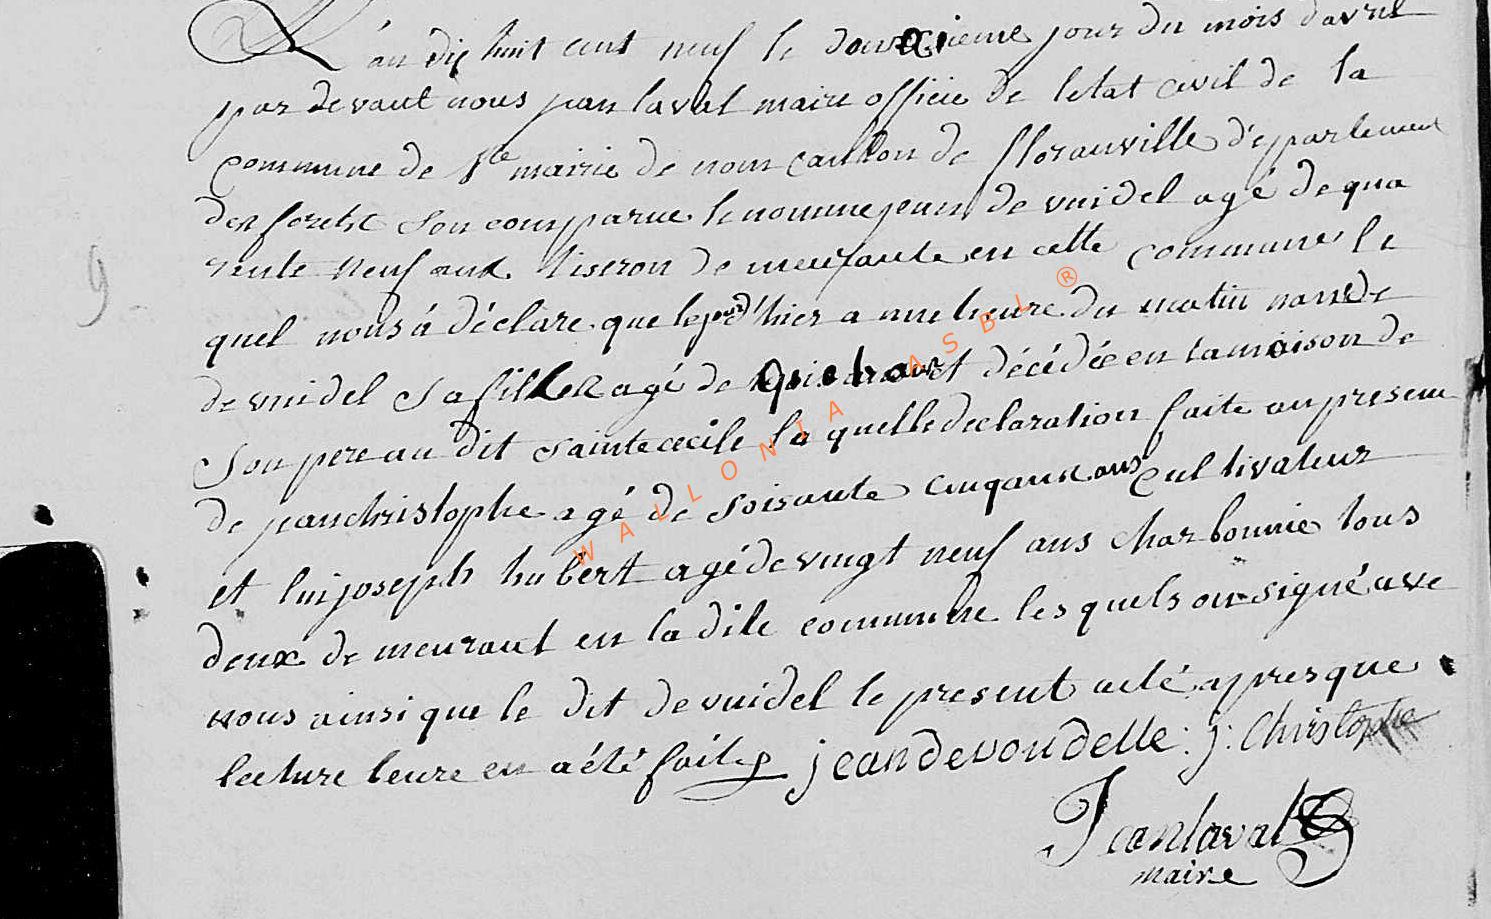 L'an dix huit cent neuf le douxieme jour du mois davril
par devant nous jean laval maire officie de letat civil de la
commune de Ste mairie de nom canton de florauville departement
des forets son comparue le nomme jean de vuidel agé de qua
rente neuf aux tiseron de meurante en cette commune le
quel nous á déclare que le jour d'hier a une heure du matin
de vuidel sa fille agé de et décédée en la maison de
son pere au dit sainte cecile la quelle declaration faite an presence
de jean christophe agé de soisante cinq ans cultivateur
et lui joseph hubert agé de vingt neuf ans charbonnie tous
deux de meurant en la dite commune les quels on signé ave
nous ainsi que le dit de vuidel le present acté apres que
lecture leure en a été faite jean de voudelle : j : Christophe
Jean laval
maire
9
WALLONIA ASBL ®